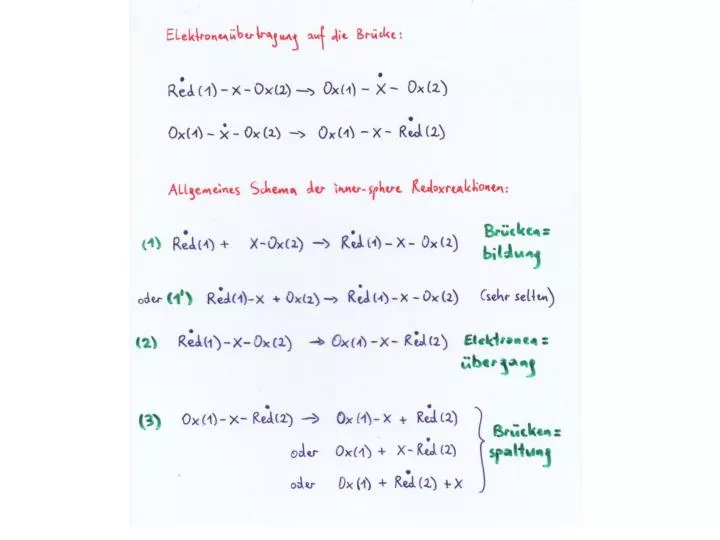 Elektronenübertragung auf die Brücke:
Rėd(1)-X-Ox(2) → Ox(1)-Ẋ-Ox(2)
Ox(1)-Ẋ-Ox(2) → Ox(1)-X-Rėd(2)
Allgemeines Schema der inner-sphere Redoxreaktionen:
(1) Rėd(1) + X-Ox(2) → Rėd(1)-X-Ox(2) Brücken=
bildung
oder (1') Rėd(1)-X + Ox(2) → Rėd(1)-X-Ox(2) (sehr selten)
(2) Rėd(1)-X-Ox(2) → Ox(1)-X-Rėd(2) Elektronen=
übergang
(3) Ox(1)-X-Rėd(2) → Ox(1)-X + Rėd(2)
Brücken=
oder Ox(1) + X-Rėd(2) spaltung
oder Ox(1) + Rėd(2) + X